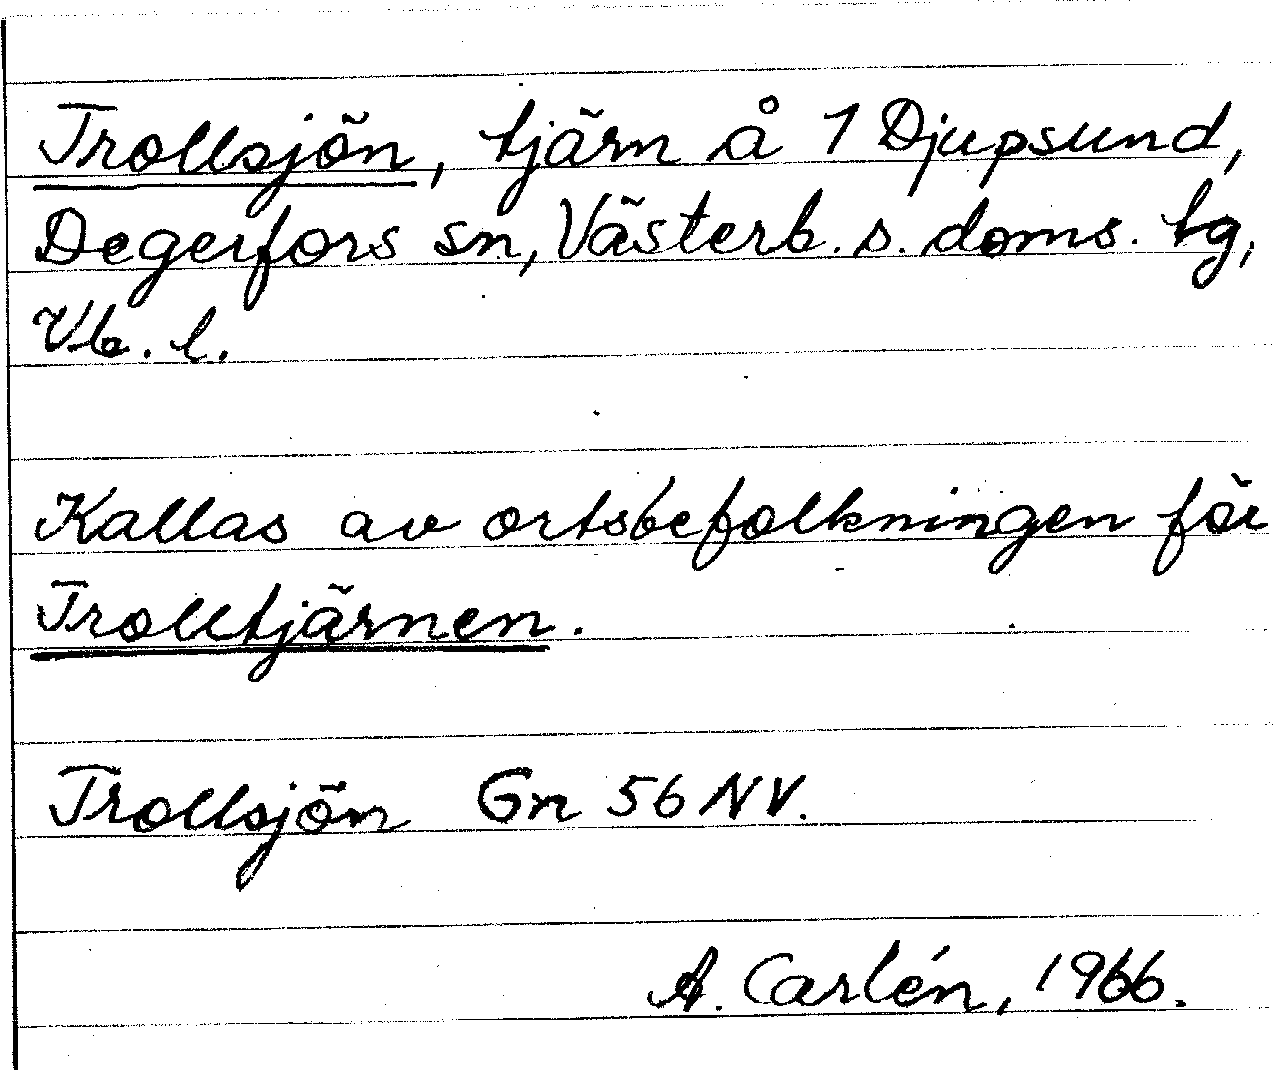 Trollsjön, tjärn å 1 Djupsund,
Degerfors sn, Västerb. s. doms. tg,
Vb. l.
Kallas av ortsbefolkningen för
Trolltjärnen.
Trollsjön Gn 56 NV.
A. Carlén, 1966.